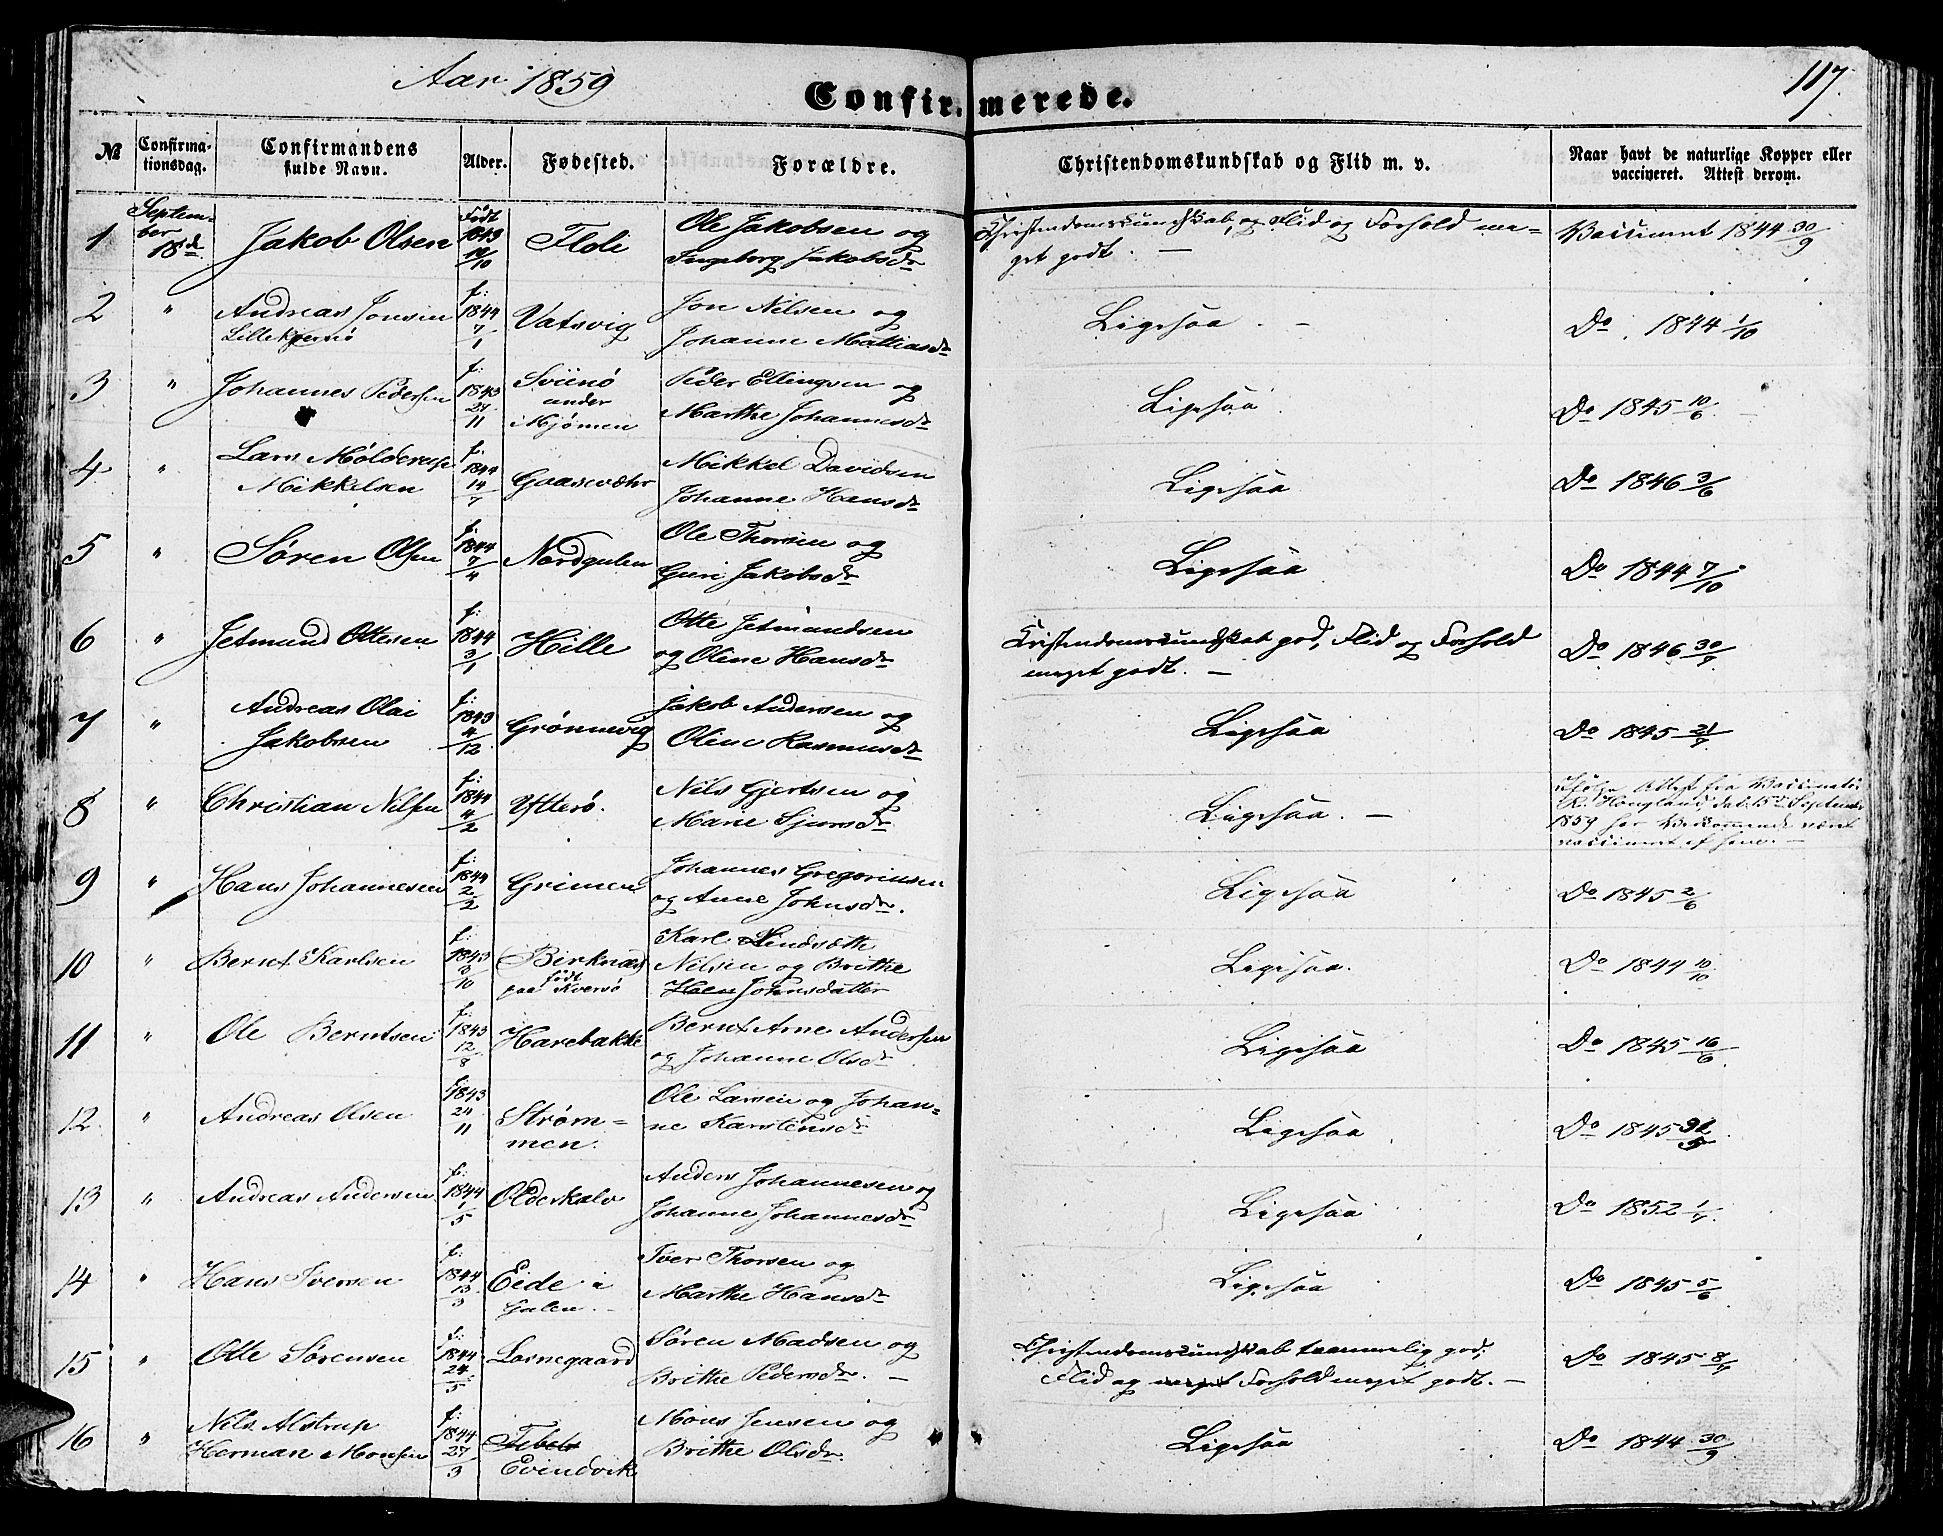 Aar 1859
Confirmerede.
117.
№
Confirma-
tionsdag.
Confirmandens
fulde Navn.
Alder.
Fødested.
Forældre.
Christendomskundskab og Flid m. v.
Naar havt de naturlige Kopper eller
vaccineret. Attest derom.
1 Septem-
ber
18d Jakob Olsen Født
1843
14/10 Floli Ole Jakobsen og
Ingeborg Jakobsdr
Christendomskundskab, og Flid og Forhold me-
get godt. —
Vaccineret 1844 30/9
2 " Andreas Jonsen
Lillekjernø f:
1844
7/1 Vatsvig Jon Nilsen og
Johanne Mattiasdr
Ligesaa. —
Do 1844 1/10
3 " Johannes Pedersen f:
1843
21/11 Sviinø
under
Mjømen Peder Ellingsen og
Marthe Johannesdr
Ligesaa.
Do 1845 10/6
4 " Lars
Mikkelsen f:
1844
14/7 Gaasevæhr Mikkel Davidsen
Johanne Hansdr
Ligesaa
Do 1846 3/6
5 " Søren Olsen f:
1844
7/4 Nordgulen Ole Thorsen og
Guri Jakobsdr
Ligesaa
Do 1844 7/10
6 " Jetmund Ottesen f:
1844
3/1 Hille Otte Jetmundsen
og Oline Hansdr
Kristendomskundskab god, Flid og Forhold
meget godt. —
Do 1846 30/7
7 " Andreas Olai
Jakobsen f:
1843
4/12 Grønnevig Jakob Andersen og
Oline Rasmusdr
Ligesaa
Do 1845 21/7
8 " Christian Nilsen f:
1844
4/2 Ytterø. Nils Gjertsen og
Marie Sjursdr
Ligesaa. —
Ifølge Attest fra Vaccinatør
R. Haugland dat. 15de September
1859 har Vedkommende været
vaccineret af ham. —
9 " Hans Johannesen f:
1844
2/2 Grimen Johannes Gregoriusen
og Anne Johnsdr.
Ligesaa
Do 1845 2/6
10 " Bernt Karlsen f:
1843
3/10 Birknæs
født
paa Kversø Karl
Nilsen og Brithe
Johnsdatter
Ligesaa.
Do 1844 10/10
11 " Ole Berntsen f:
1843
12/8 Harebakke Bernt Arne Andersen
og Johanne Olsdr
Ligesaa
Do 1845 16/6
12. " Andreas Olsen f:
1843
24/11 Strøm-
men. Ole Larsen og Johan-
ne Karstensdr
Ligesaa
Do 1845
13 " Andreas Andersen f:
1844
1/5 Olderkalv Anders Johannesen og
Johanne Johannesdr
Ligesaa
Do 1852 1/7.
14 " Hans Iversen f:
1844
13/3 Eide i
Gulen. — Iver Thorsen og
Marthe Hansdr
Ligesaa
Do 1845 5/6
15 " Otte Sørensen f:
1844
24/5 Losnegaard Søren Madsen og
Brithe Pedersdr. —
Christendomskundskab taammelig god,
Flid og meget Forhold meget godt. —
Do 1845 8/7
16 " Nils Alstrup
Herman Monsen f:
1844
27/3 Evindvik Mons Jensen og
Brithe Olsdr.
Ligesaa
Do 1844 30/9